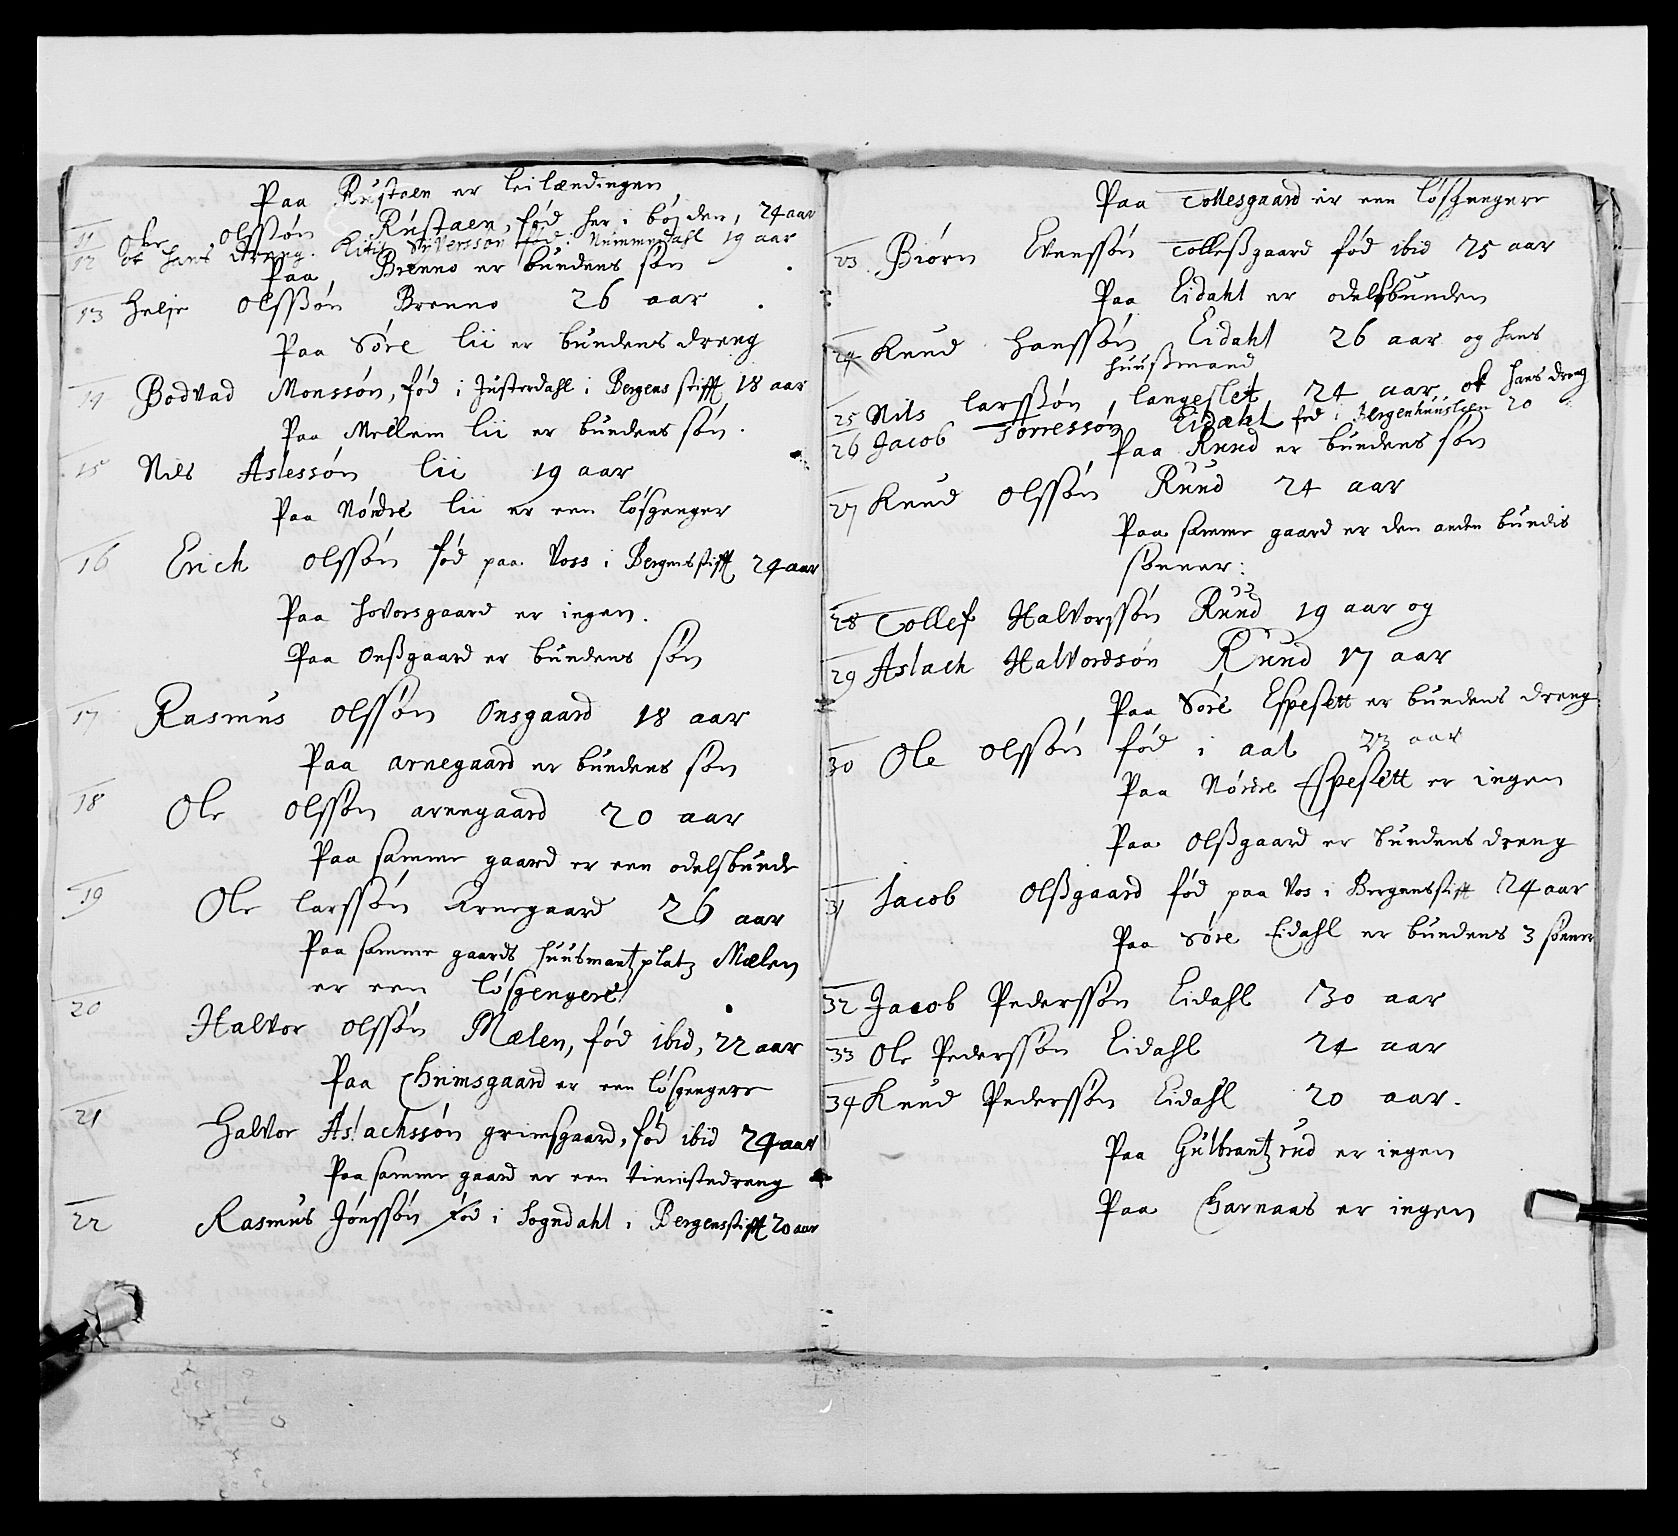 Paa Rustaen er leilændingen
11 Ole olssøn Rustaen, fød her i bøjden, 24 aar
12 ok hans dreng. Kitil Siverssøn fød i Nummedahl 19 aar
Paa Brenno er bundens søn
13 Helje olssßøn Brenno 26 aar
Paa Søre lii er bundens dreng
14 Bodvad Monssøn, fød i Justerdahl i Bergens stifft 18 aar
Paa Mellem lii er bundens søn.
15 Nils Aslessøn lii 19 aar
Paa Nørdre lii er een løsgenger
16 Erich olssøn fød paa Voss i Bergensstifft 24 aar
Paa hovorsgaard er ingen.
Paa Onßgaard er bundens søn
17 Rasmus olssøn Onsgaard 18 aar
Paa arnegaard er bundens søn
18 Ole olssøn arnegaard 20 aar
Paa samme gaard er een odelsbunde
19 Ole larssøn Arnegaard 26 aar
Paa samme gaards huusmantz platz Mælen
er een løsgengere
20 Halvor olssøn Mælen, fød ibid, 22 aar
Paa Grimsgaard er een løsgengere
21 Halvor Aslachssøn grimsgaard, fød ibid 24 aar
Paa samme gaard er een tienistedreng
22 Rasmus Jønssøn fød i Sogndahl i Bergensstifft 20 aar
Paa Tollesgaard er een løsgengere
23 Biørn Evenssøn Tolleßgaard fød ibid 25 aar
Paa Eidahl er odelsbunden
24 Knud Hanssøn Eidahl 26 aar og hans
huusmand
25 Nils larssøn, langeslet 24 aar ok hans dreng
26 Jacob Torressøn Eidahl fød i Bergenhuuslen 20
Paa Ruud er bundens søn
27 Knud olssøn Ruud 24 aar
Paa samme gaard er den anden bundis
sønner:
28 Tollef Halvorssøn Ruud 19 aar og
29 Aslach Halvordsøn Ruud 17 aar
Paa Søre Espesett er bundens dreng
30 Ole olssøn fød i aal 23 aar
Paa Nørdre Espesett er ingen
Paa Olßgaard er bundens dreng
31 Jacob Olßgaard fød paa Vos i Bergensstifft 24 aar
Paa Søre Eidahl er bundens 3 sønner
32 Jacob Pederssøn Eidahl 30 aar
33 Ole Pederssøn Eidahl 24 aar
34 Knud Pederssøn Eidahl 20 aar.
Paa Gulbrantzrud er ingen
Paa Garnaas er ingen